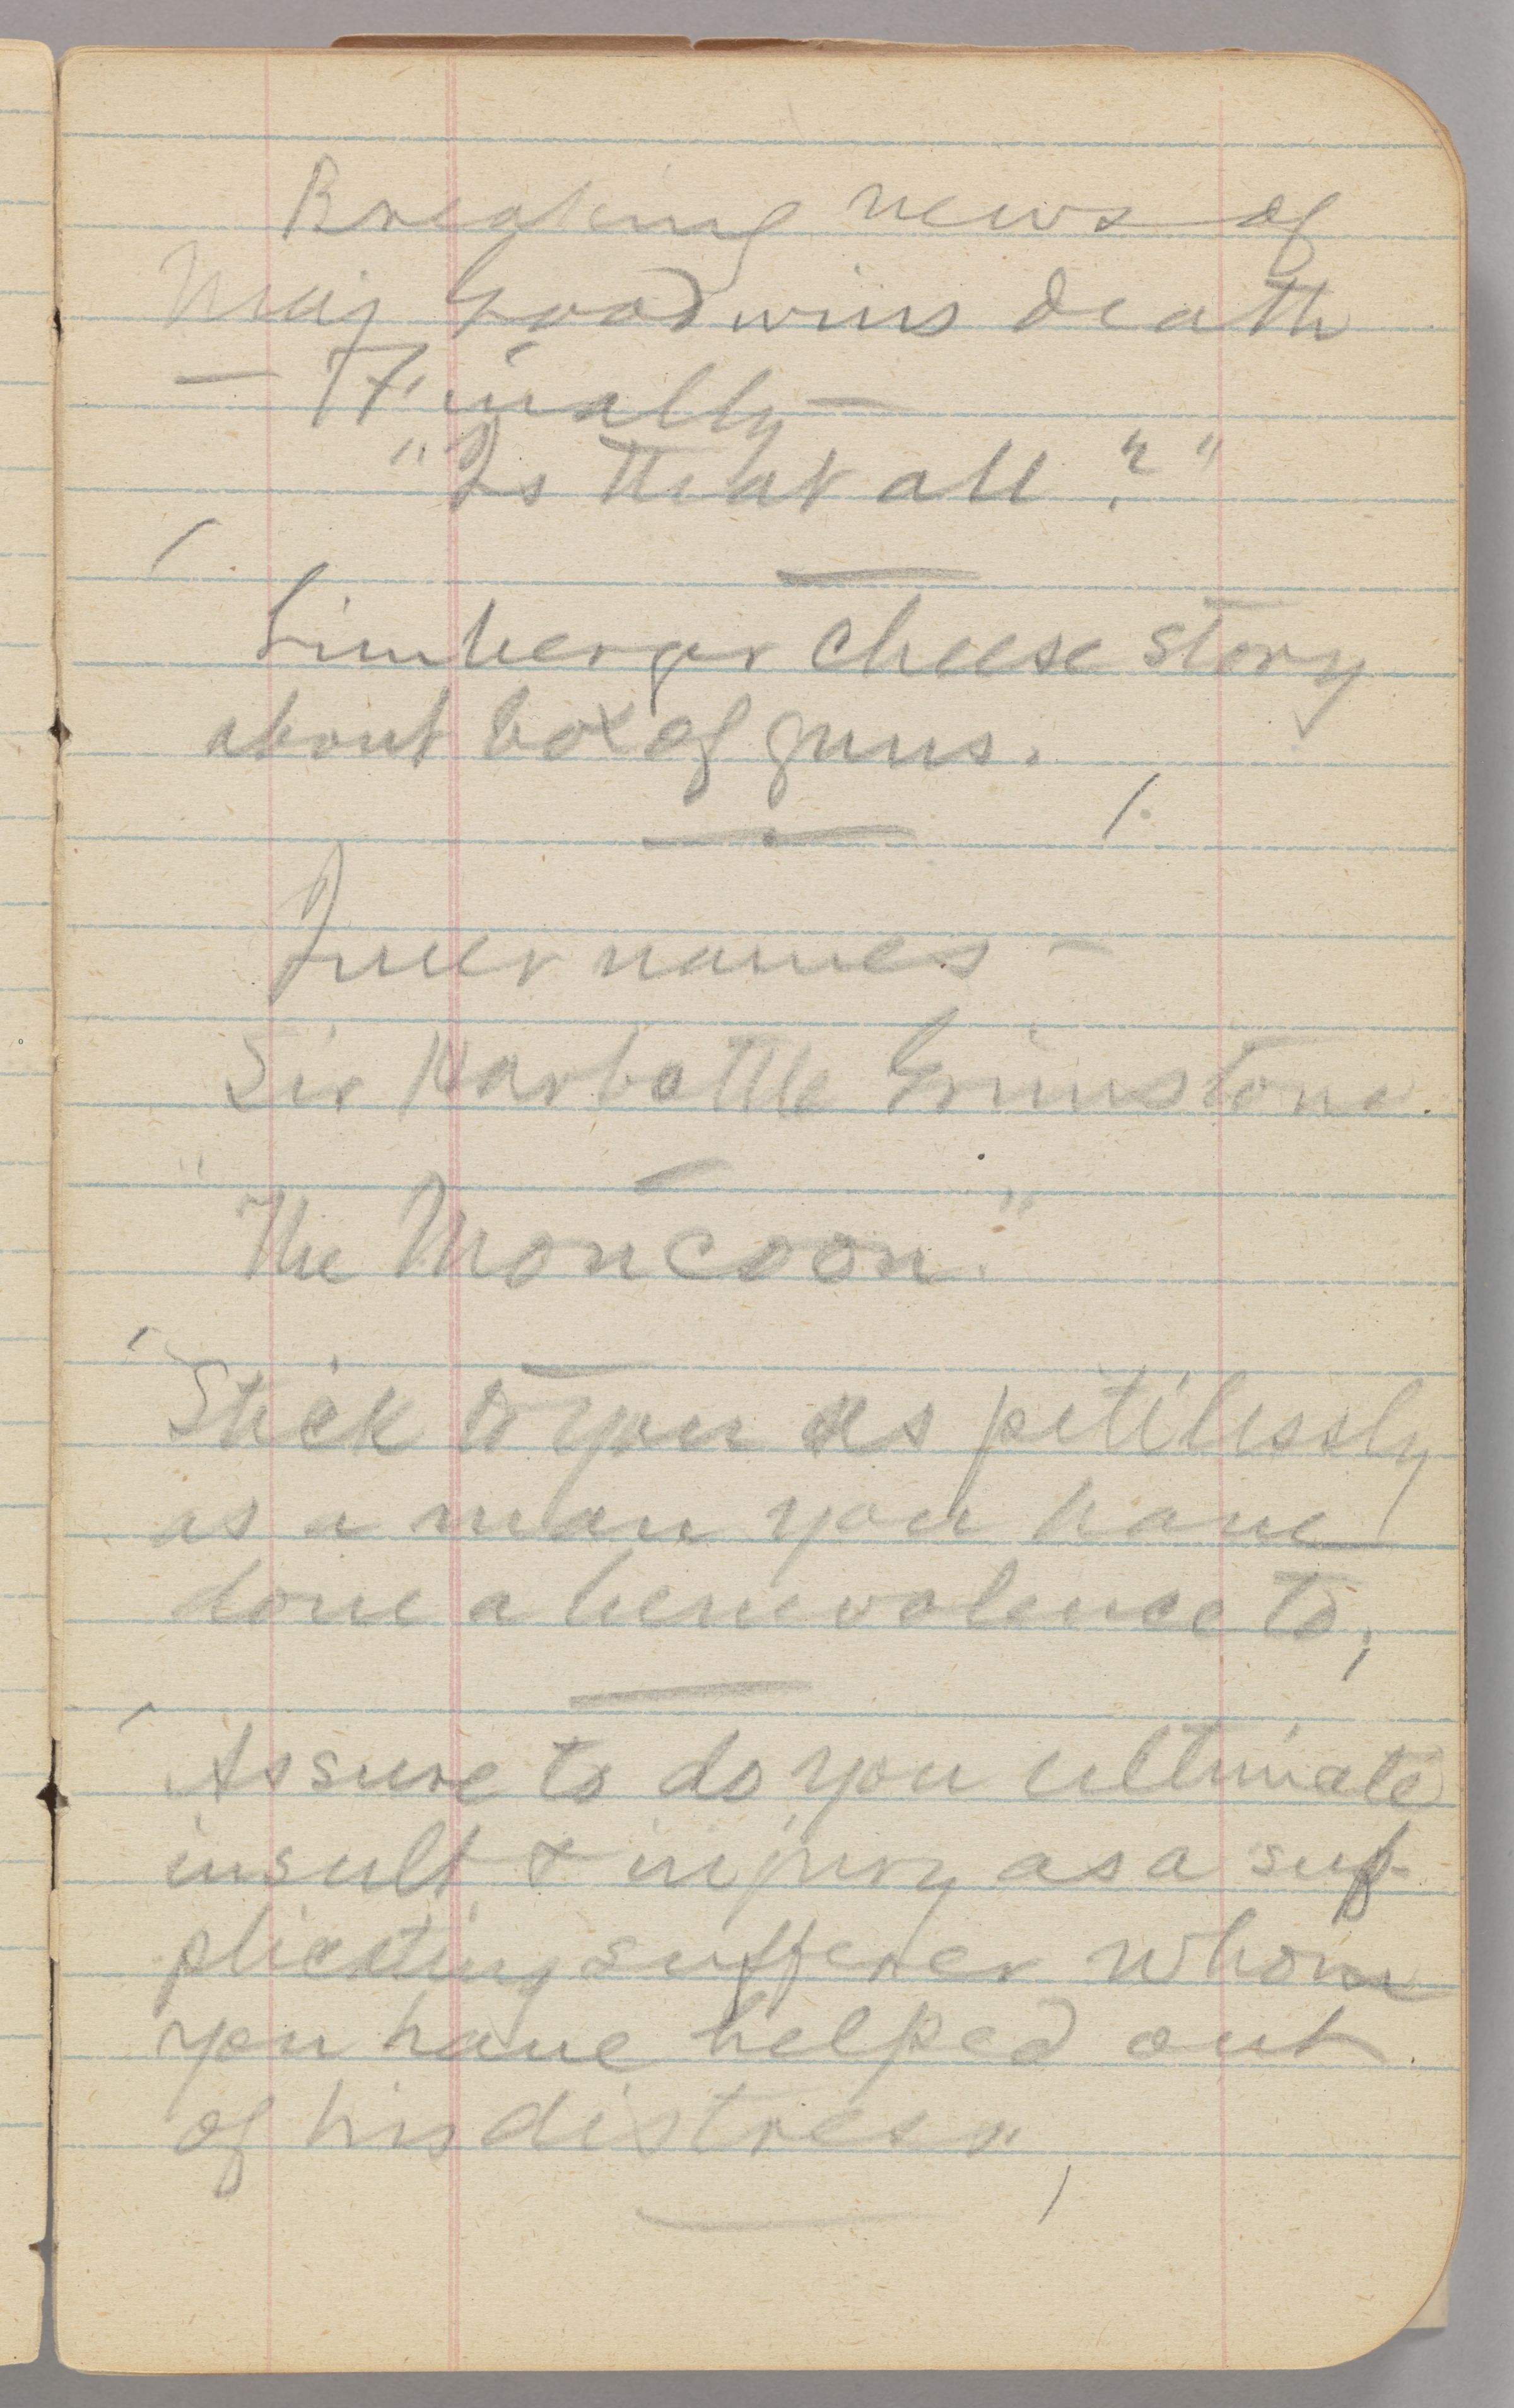 Breaking news of
Maj Goodwins death
— Finally —
"Is that all?"
Limberger cheese story
about box of guns.
Queer names —
Sir Harbottle Grimstone.
"The Moncoon."
Stick to you as pitilessly
as a man you have
done a benevolence to,
As sure to do you ultimate
insult & injury as a sup-
plicating sufferer whom
you have helped out
of his distress,